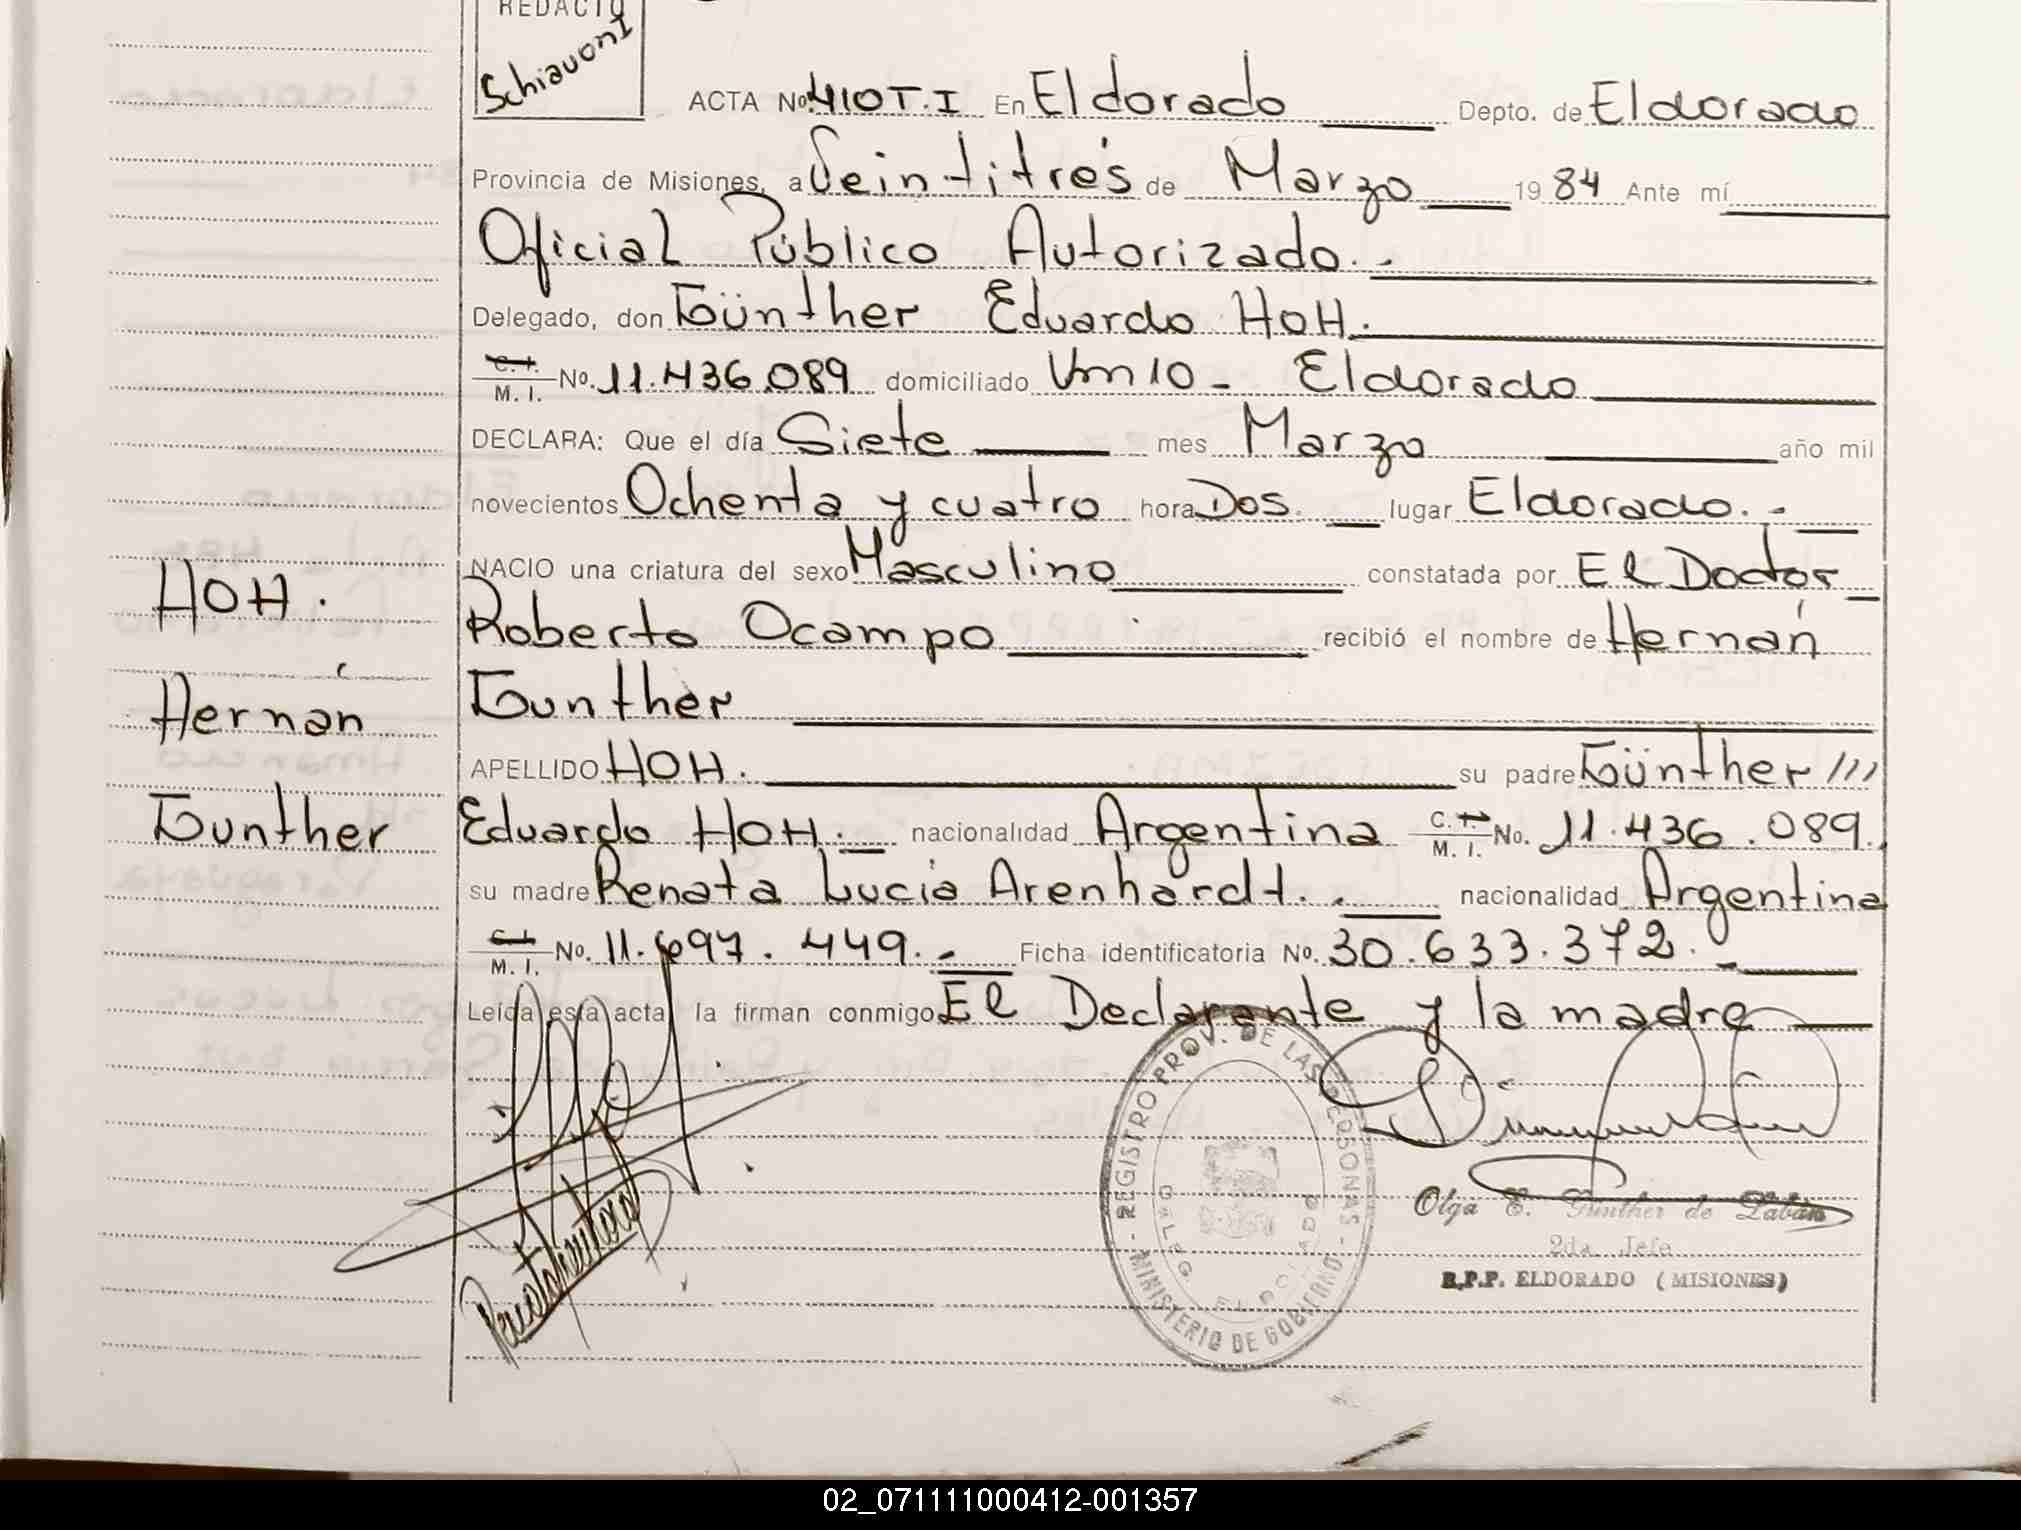 REDACTO
Schiavoni
ACTA No. 410 T.I En Eldorado Depto. de Eldorado
Provincia de Misiones, a Veintitrés de Marzo 1984 Ante mí
Oficial Público Autorizado.-
Delegado, don Günther Eduardo HOH.
C.I. M. I. No. 11.436.089 domiciliado Km 10 - Eldorado
DECLARA: Que el día Siete mes Marzo año mil
novecientos Ochenta y cuatro hora Dos. lugar Eldorado.-
NACIO una criatura del sexo Masculino constatada por El Doctor
Roberto Ocampo recibió el nombre de Hernán
Gunther
APELLIDO HOH. su padre Günther ///
Eduardo HOH. nacionalidad Argentina C.I. M. I. No. 11.436.089.
su madre Renata Lucia Arenhardt. nacionalidad Argentina
C.I. M. I. No. 11.697.449.- Ficha identificatoria No. 30.633.372.-
Leída esta acta la firman conmigo El Declarante y la madre
HOH.
Hernán
Gunther
- REGISTRO PROV. DE LAS PERSONAS - MINISTERIO DE GOBIERNO
ELDORADO
Olga E. Günther de Labán
2da. Jefe
R.P.P. ELDORADO (MISIONES)
02_071111000412-001357